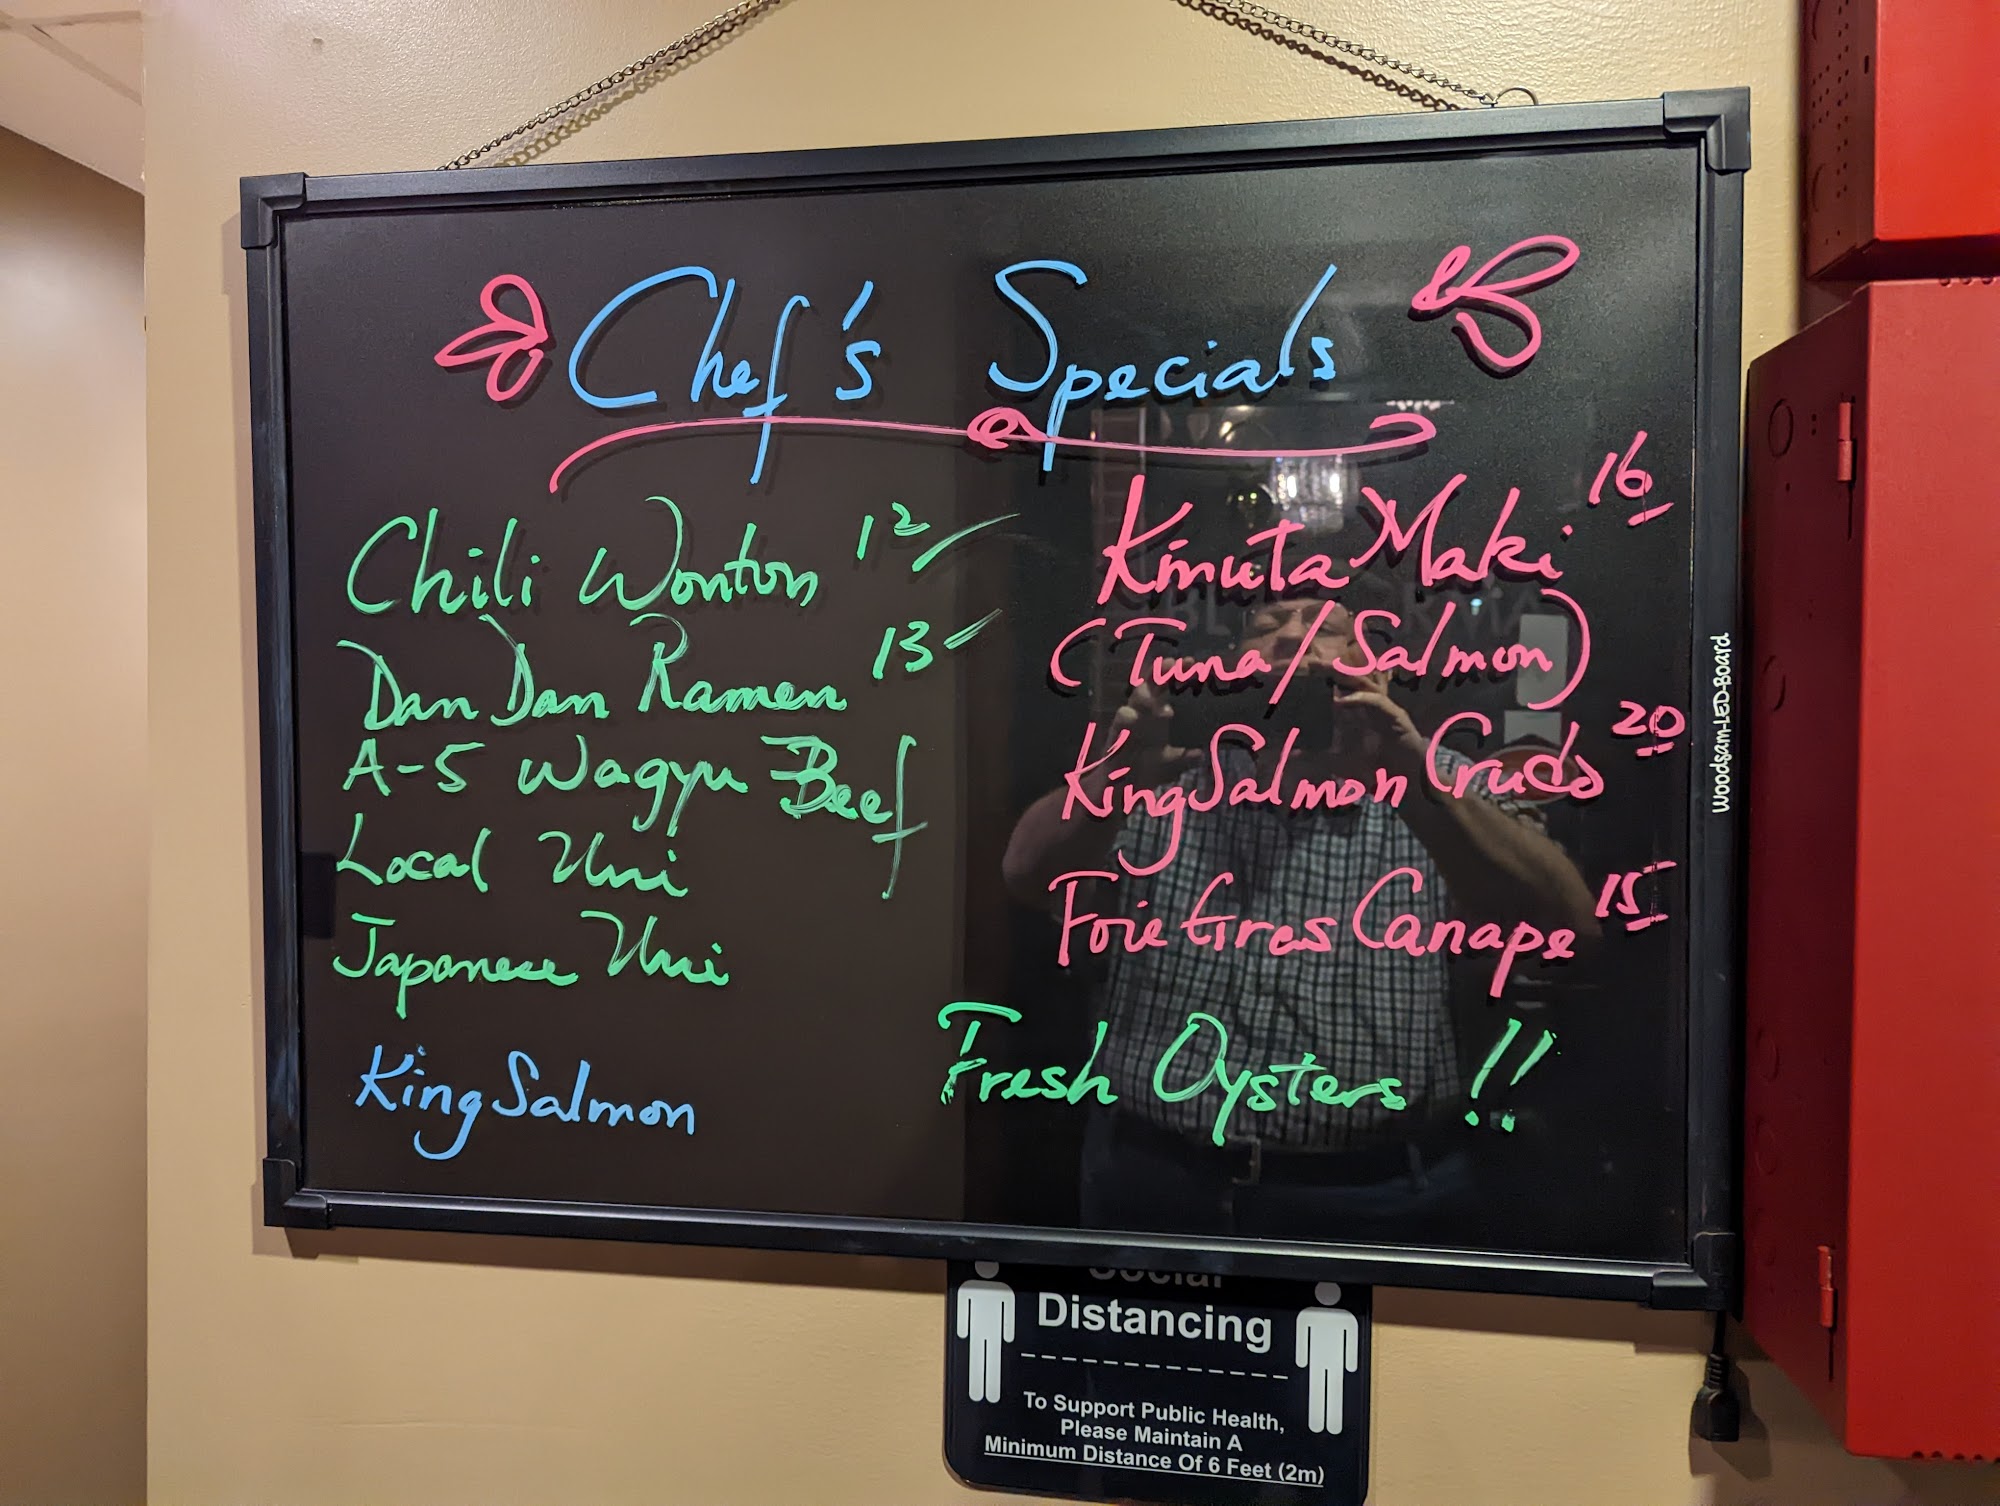 Chef's Specials
Chili Wonton 12
Dan Dan Ramen 13
A-5 Wagyu Beef
Local Uni
Japanese Uni
King Salmon
Kinuta Maki 16
(Tuna/Salmon)
King Salmon Crudo 20
Foie Gras Canape 15
Fresh Oysters !!
Woodsam-LED-Board
Social
Distancing
To Support Public Health,
Please Maintain A
Minimum Distance Of 6 Feet (2m)